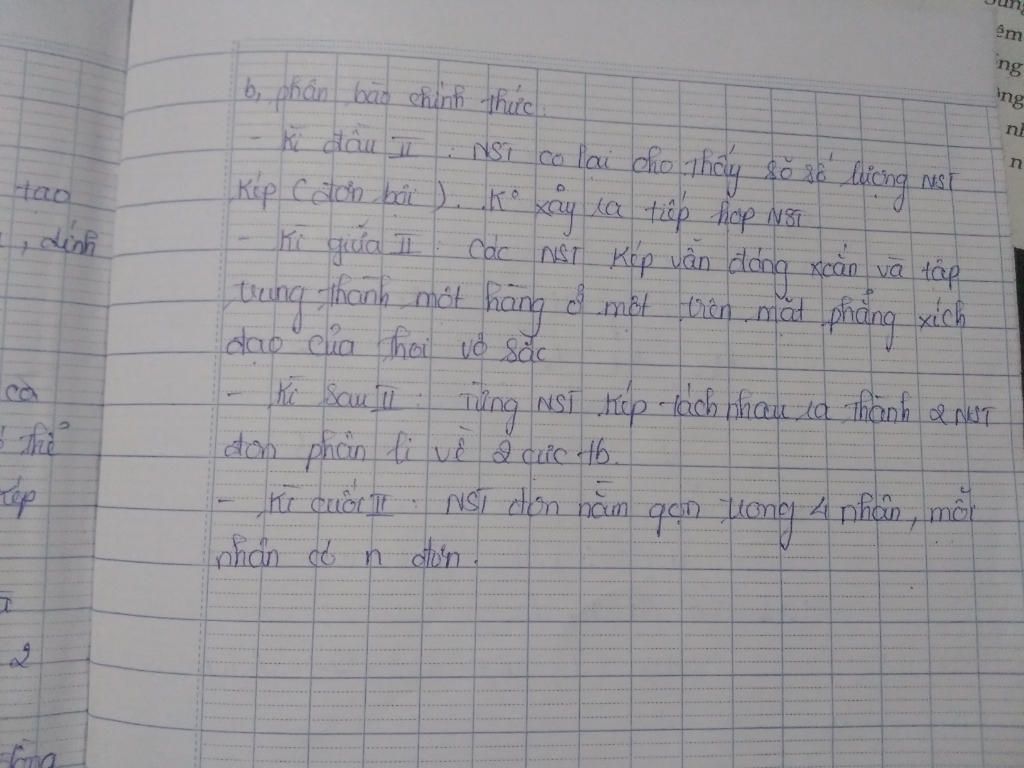 b, phân bào chính thức.
- Kì đầu II : NST co lại cho thấy rõ số lượng NST
kép (đơn bội). K° xảy ra tiếp hợp NST
- Kì giữa II : Các NST kép vẫn đóng xoắn và tập
trung thành một hàng ở một trên mặt phẳng xích
đạo của thoi vô sắc
- Kì sau II : Từng NST kép tách nhau ra thành 2 NST
đơn phân li về 2 cực tb.
- Kì cuối II : NST đơn nằm gọn trong 4 nhân, mỗi
nhân có n đơn.
tao
, dính
cà
thể
kép
2